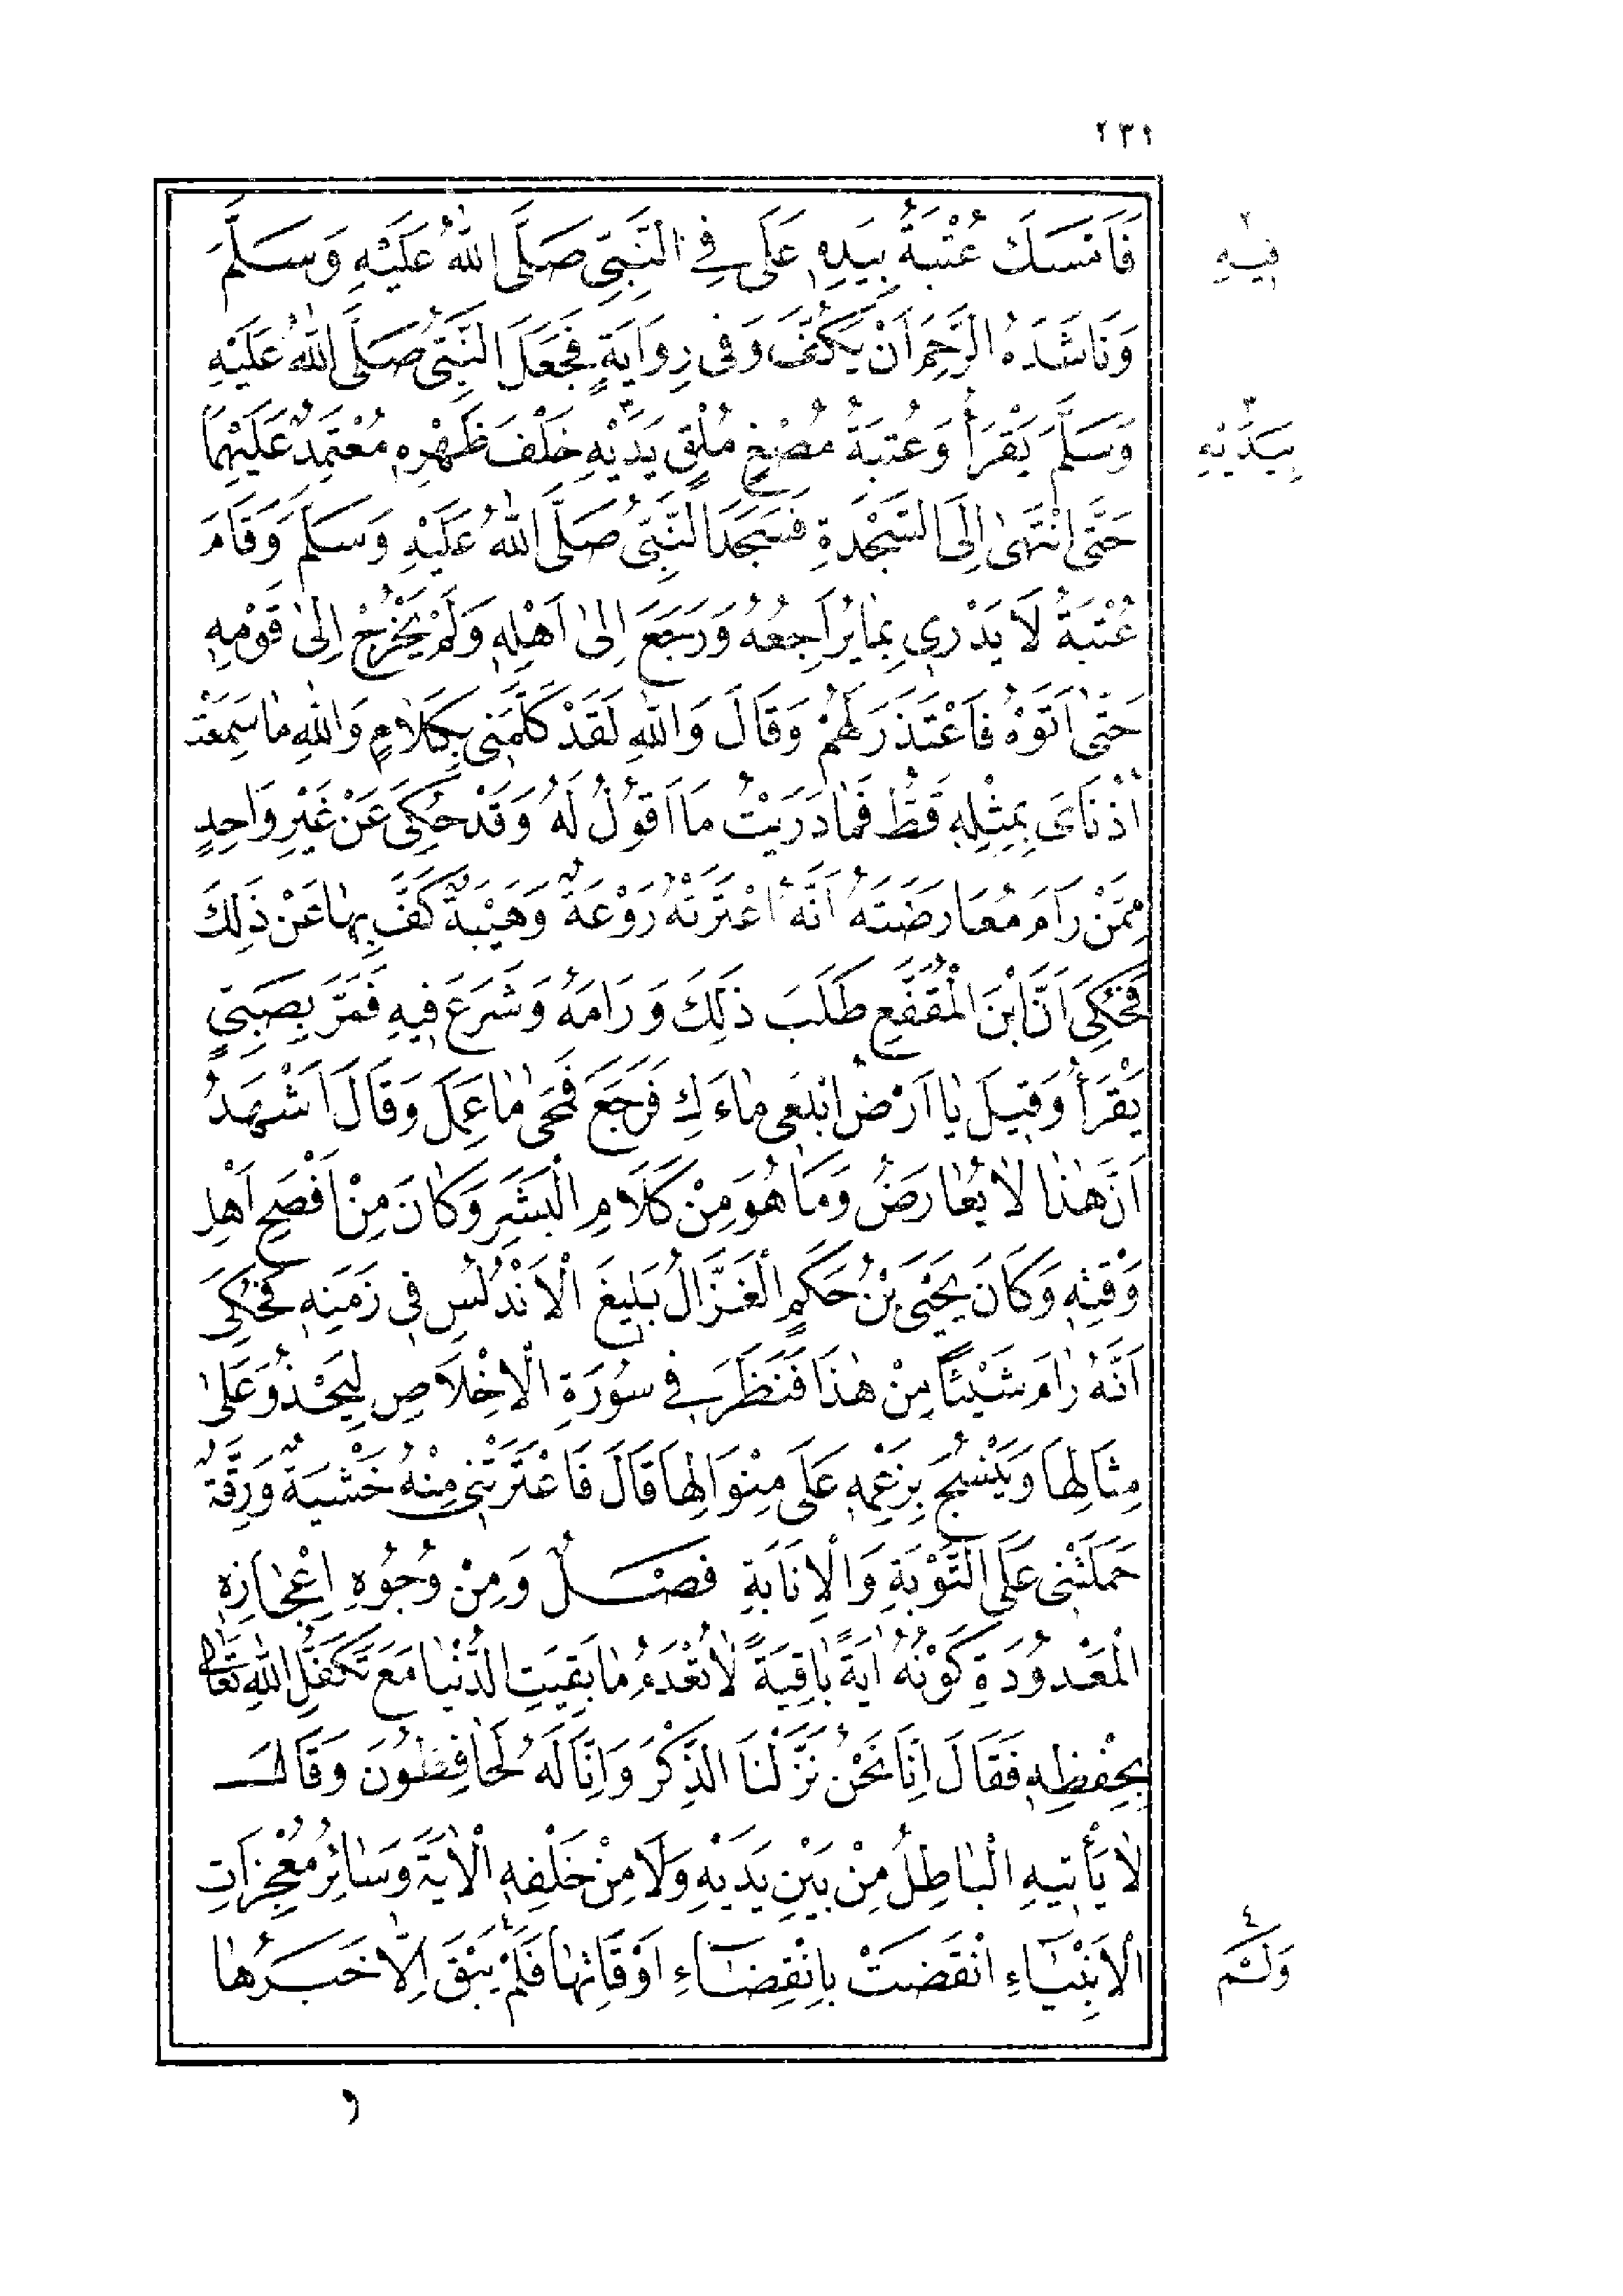 ٢٣١
فَاَمْسَكَ عُتْبَةُ بِيَدِهِ عَلَى فِي النَّبِيِّ صَلَّى اللهُ عَلَيْهِ وَسَلَّمَ
وَنَاشَدَهُ الرَّحِمَ اَنْ يَكُفَّ وَفِى رِوَايَةٍ فَجَعَلَ النَّبِىُّ صَلَّى اللهُ عَلَيْهِ
وَسَلَّمَ يَقْرَأُ وَعُتْبَةُ مُصْغٍ مُلْقٍ يَدَيْهِ خَلْفَ ظَهْرِهِ مُعْتَمِدٌ عَلَيْهِمَا
حَتَّى انْتَهَى اِلَى السَّجْدَةِ فَسَجَدَ النَّبِىُّ صَلَّى اللهُ عَلَيْهِ وَسَلَّمَ وَقَامَ
عُتْبَةُ لَا يَدْرِي بِمَا يُرَاجِعُهُ وَرَجَعَ اِلَى اَهْلِهِ وَلَمْ يَخْرُجْ اِلَى قَوْمِهِ
حَتَّى اَتَوْهُ فَاعْتَذَرَ لَهُمْ وَقَالَ وَاللهِ لَقَدْ كَلَّمَنِى بِكَلَامٍ وَاللهِ مَا سَمِعَتْ
اُذُنَاىَ بِمِثْلِهِ قَطُّ فَمَا دَرَيْتُ مَا اَقُولُ لَهُ وَقَدْ حُكِىَ عَنْ غَيْرِ وَاحِدٍ
مِمَّنْ رَامَ مُعَارَضَتَهُ اَنَّهُ اعْتَرَتْهُ رَوْعَةٌ وَهَيْبَةٌ كَفَّ بِهَا عَنْ ذَلِكَ
فَحُكِىَ اَنَّ ابْنَ الْمُقَفَّعِ طَلَبَ ذَلِكَ وَرَامَهُ وَشَرَعَ فِيهِ فَمَرَّ بِصَبِىٍّ
يَقْرَأُ وَقِيلَ يَا اَرْضُ ابْلَعِى مَاءَكِ فَرَجَعَ فَمَحَى مَا عَمِلَ وَقَالَ اَشْهَدُ
اَنَّ هٰذَا لَا يُعَارَضُ وَمَا هُوَ مِنْ كَلَامِ الْبَشَرِ وَكَانَ مِنْ اَفْصَحِ اَهْلِ
وَقْتِهِ وَكَانَ يَحْيَى بْنُ حَكَمٍ الْغَزَّالُ بَلِيغَ الْاَنْدُلُسِ فِى زَمَنِهِ فَحُكِىَ
اَنَّهُ رَامَ شَيْئًا مِنْ هٰذَا فَنَظَرَ فِي سُورَةِ الْاِخْلَاصِ لِيَحْذُوَ عَلَى
مِثَالِهَا وَيَنْسُجَ بِزَعْمِهِ عَلَى مِنْوَالِهَا قَالَ فَاعْتَرَتْنِى مِنْهُ خَشْيَةٌ وَرِقَّةٌ
حَمَلَتْنِى عَلَى التَّوْبَةِ وَالْاِنَابَةِ فَصْلٌ وَمِنْ وُجُوهِ اِعْجَازِهِ
الْمَعْدُودَةِ كَوْنُهُ اٰيَةً بَاقِيَةً لَا تُعْدَمُ مَا بَقِيَتِ الدُّنْيَا مَعَ تَكَفُّلِ اللهِ تَعَالَى
بِحِفْظِهِ فَقَالَ اِنَّا نَحْنُ نَزَّلْنَا الذِّكْرَ وَاِنَّا لَهُ لَحَافِظُونَ وَقَالَ
لَا يَأْتِيهِ الْبَاطِلُ مِنْ بَيْنِ يَدَيْهِ وَلَا مِنْ خَلْفِهِ الْاٰيَةَ وَسَائِرُ مُعْجِزَاتِ
الْاَنْبِيَاءِ انْقَضَتْ بِانْقِضَاءِ اَوْقَاتِهَا فَلَمْ يَبْقَ اِلَّا خَبَرُهَا
٢ فِيهِ
٣ بِيَدَيْهِ
٤ وَلَمْ
و